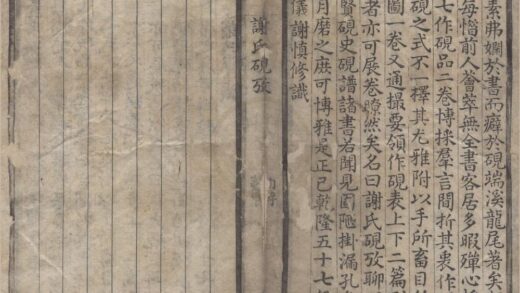 素弗嫻於書而癖於硯端溪龍尾著矣
每惜前人薈萃無全書客居多暇殫心
七作硯品二卷博採羣言間折其衷作
硯之式不一擇其尤雅附以手所畜目
圖一卷又通撮要領作硯表上下二篇
者亦可展卷瞭然矣名曰謝氏硯攷聊
賢硯史硯譜諸書若聞見固陋掛漏孔
月磨之庶可博雅是正已乾隆五十七
儀謝慎修識
謝氏硯攷